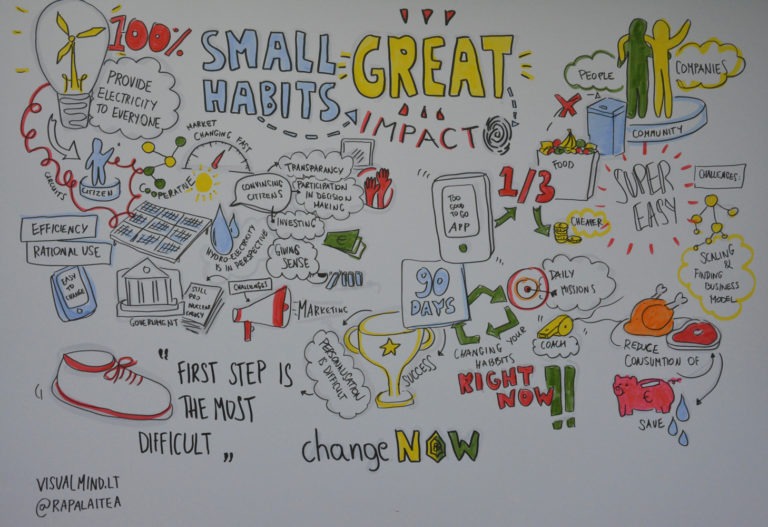 100%
SMALL
HABITS
GREAT
IMPACT
PROVIDE
ELECTRICITY
TO EVERYONE
PEOPLE
COMPANIES
COMMUNITY
MARKET
CHANGING FAST
CITIZEN
COOPERATIVE
TRANSPARANCY
CONVINCING
CITIZENS
PARTICIPATION
IN DECISION
MAKING
INVESTING
GIVING
SENSE
HYDRO-ELECTRICITY
IS IN PERSPECTIVE
EFFICIENCY
RATIONAL USE
EASY
TO
CHANGE
GOVERNMENT
STILL
PRO
NUCLEAR
CHALLENGES
MARKETING
TOO
GOOD TO
GO
APP
1/3
FOOD
CHEAPER
SUPER
EASY
CHALLAGES:
SCALING
&
FINDING
BUSINESS
MODEL
90
DAYS
DAILY
MISSIONS
COACH
CHANGING YOUR
HABBITS
RIGHT
NOW!!
SUCCESS
PERSONNALISATION
IS DIFFICULT
REDUCE
CONSUMTION OF
€
SAVE
"FIRST STEP IS
THE MOST
DIFFICULT"
changeNOW
VISUALMIND.LT
@RAPALAITEA